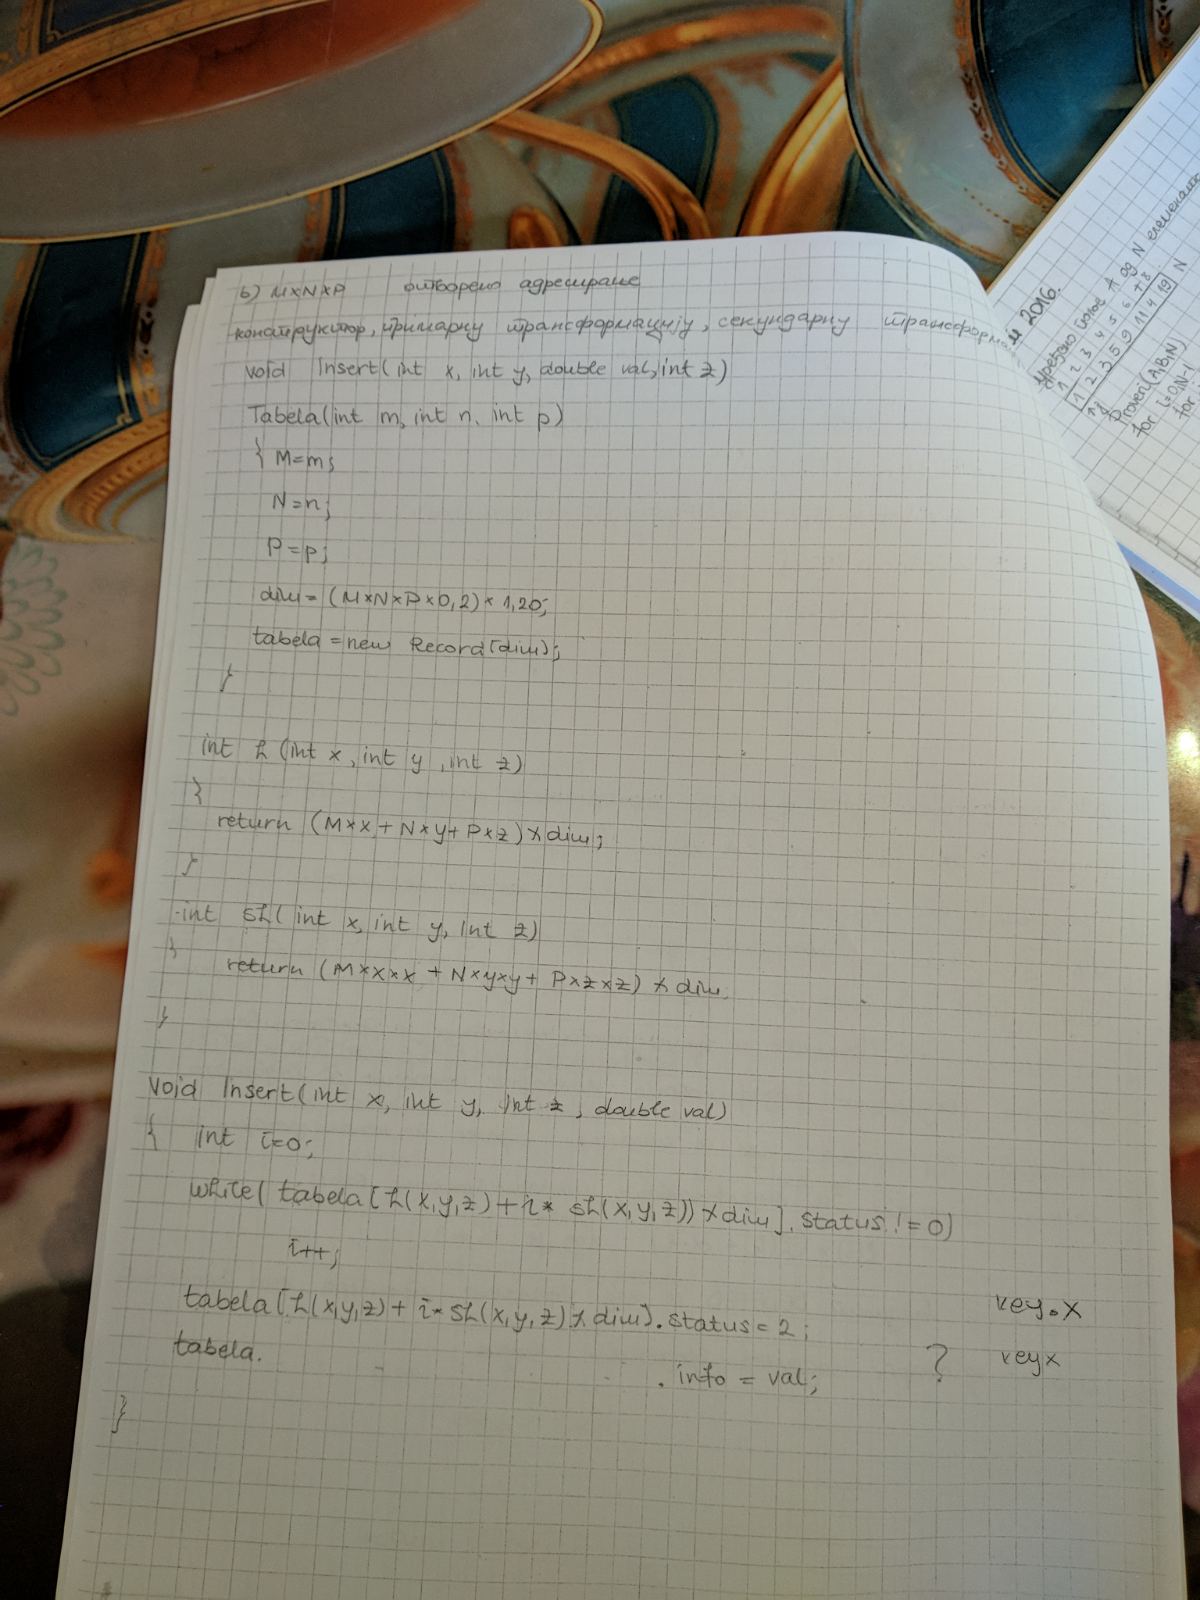 б) M×N×P отворено адресирање
конструктор, примарну трансформацију, секундарну
void Insert(int x, int y, double val, int z)
Tabela(int m, int n, int p)
{ M=m;
N=n;
P=p;
dim = (M*N*P*0,2)*1,20;
tabela = new Record[dim];
}
int h (int x, int y, int z)
{
return (M*x + N*y + P*z) % dim;
}
int sh( int x, int y, int z)
{
return (M*x*x + N*y*y + P*z*z) % dim
}
void Insert(int x, int y, int z, double val)
{ int i=0;
while( tabela [h(x,y,z) + i* sh(x,y,z)) % dim]. status != 0)
i++;
tabela [h(x,y,z) + i* sh(x,y,z) % dim]. status = 2;
key.x
tabela.
. info = val;
? keyx
}
2016.
A од N
1 2 3 4 5 6 7 8
1 2 3 5 9 11 14 19 N
Proveri(A,B,N)
for i=0,N-1
for